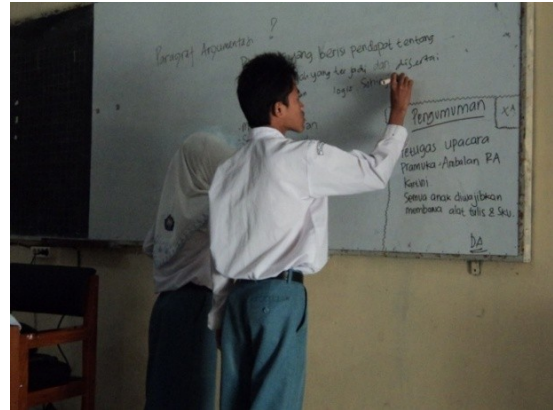 Paragraf Argumentasi ?
yang berisi pendapat tentang
yang terjadi dan disertai
logis
Pengumuman
XA
Petugas upacara
Pramuka-Ambalan RA
Kartini
Semua anak diwajibkan
membawa alat tulis & Sku.
DA